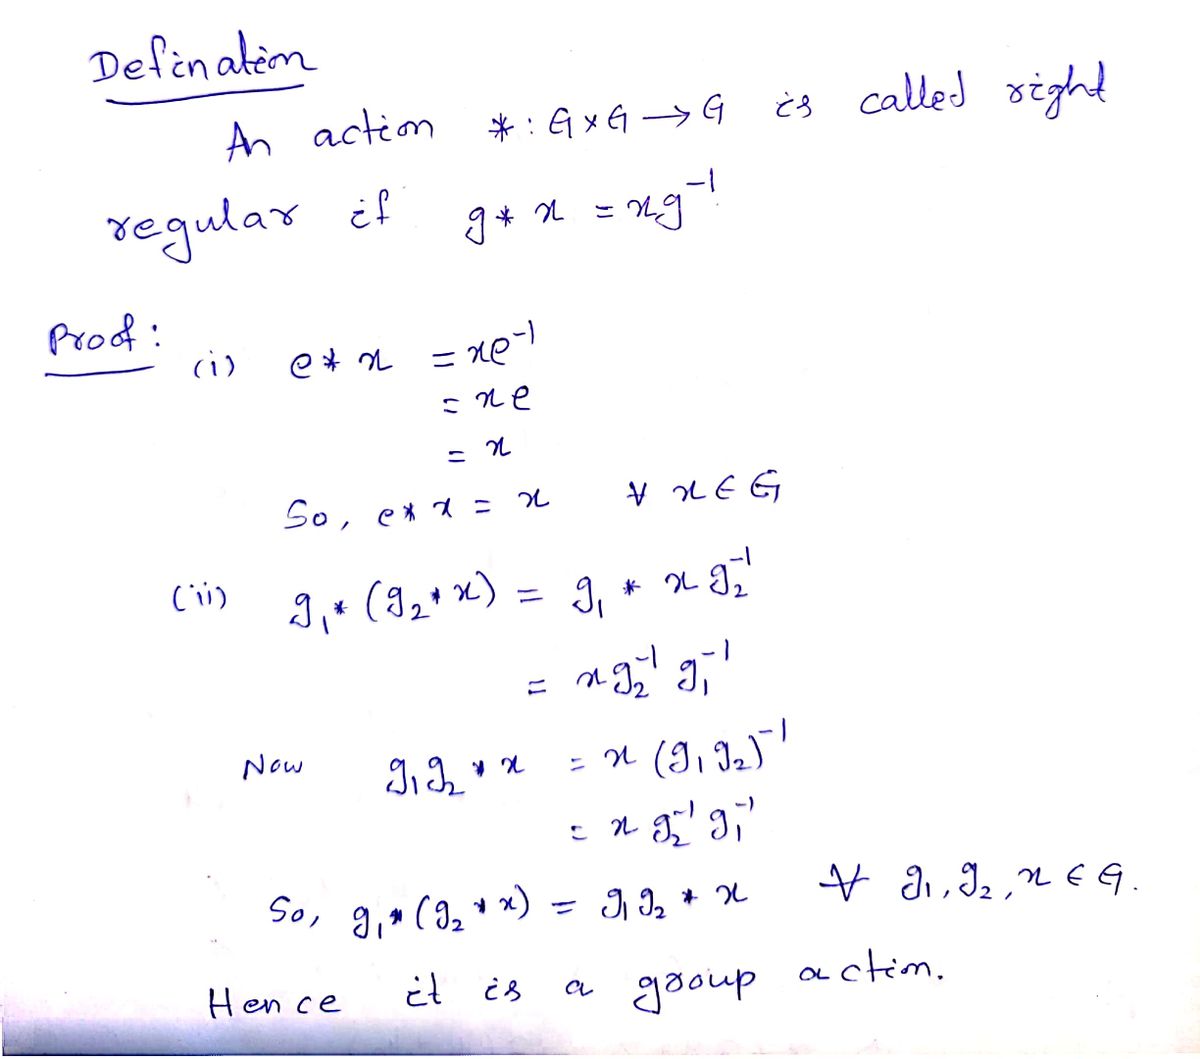 Defination
An action * : G × G → G is called right
regular if g * x = xg⁻¹
Proof :
(i) e * x = xe⁻¹
= xe
= x
So, e * x = x ∀ x ∈ G
(ii) g₁ * (g₂ * x) = g₁ * x g₂⁻¹
= x g₂⁻¹ g₁⁻¹
Now g₁g₂ * x = x (g₁ g₂)⁻¹
= x g₂⁻¹ g₁⁻¹
So, g₁ * (g₂ * x) = g₁ g₂ * x ∀ g₁, g₂, x ∈ G.
Hence it is a group action.